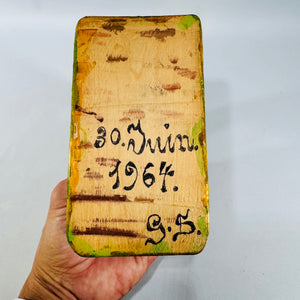 30. Juin.
1964.
G.S.